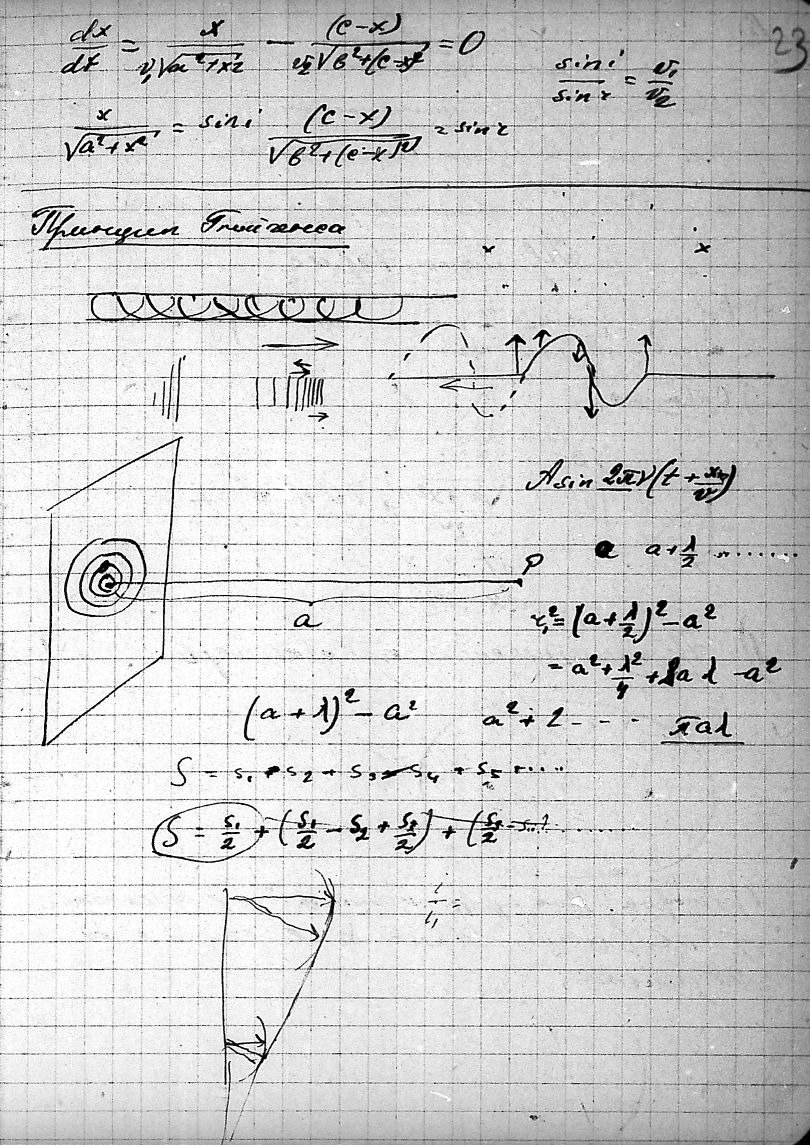 23
dx/dt = x/v₁√(a²+x²) − (c−x)/v₂√(b²+(c−x)²) = 0
sin i/sin r = v₁/v₂
x/√(a²+x²) = sin i (c−x)/√(b²+(c−x)²) = sin r
Принцип Гюйгенса
A sin 2πν(t +
a a+λ/2 ........
P
a
r₁² = (a+λ/2)² − a²
= a² + λ²/4 + aλ − a²
(a+λ)² − a² a² + 2 - - - πaλ
S = s₁ + s₂ + s₃ - s₄ + s₅ + ....
S = s₁/2 + (s₁/2 − s₂ + s₃/2) + (s₃/2 -
i/i₁ =